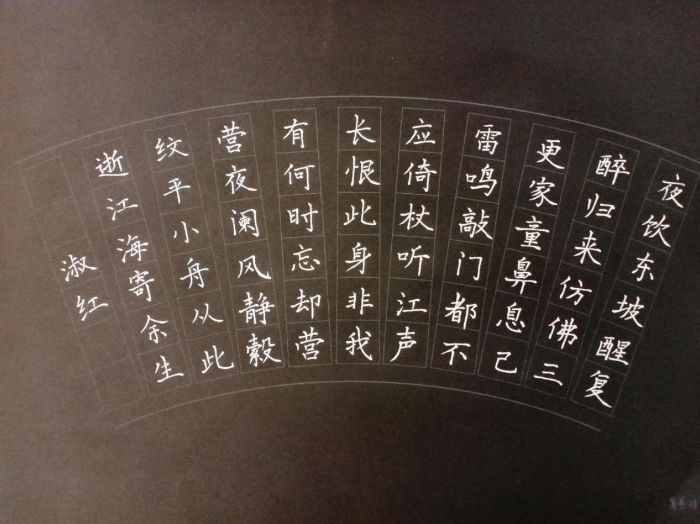 夜饮东坡醒复
醉归来仿佛三
更家童鼻息己
雷鸣敲门都不
应倚杖听江声
长恨此身非我
有何时忘却营
营夜阑风静縠
纹平小舟从此
逝江海寄余生
淑红